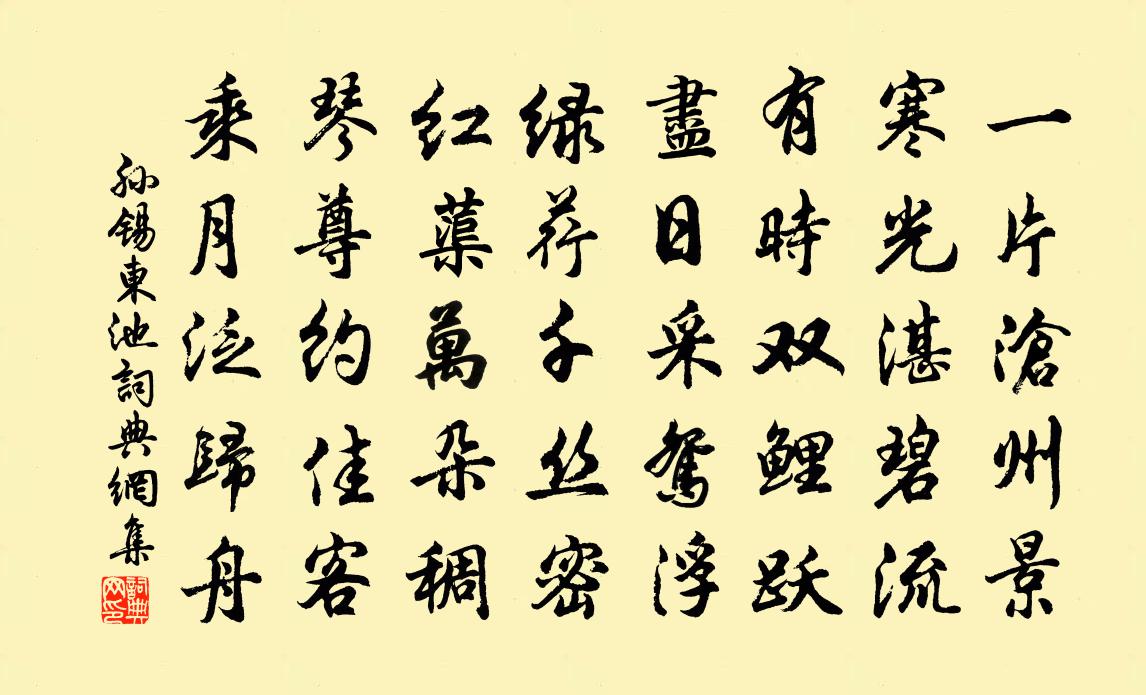 一片滄州景
寒光湛碧流
有時双鯉跃
盡日采鴛浮
绿荇千丝密
红蕖萬朵稠
琴尊约佳客
乘月泛歸舟
孙錫東池詞典網集
詞典网印